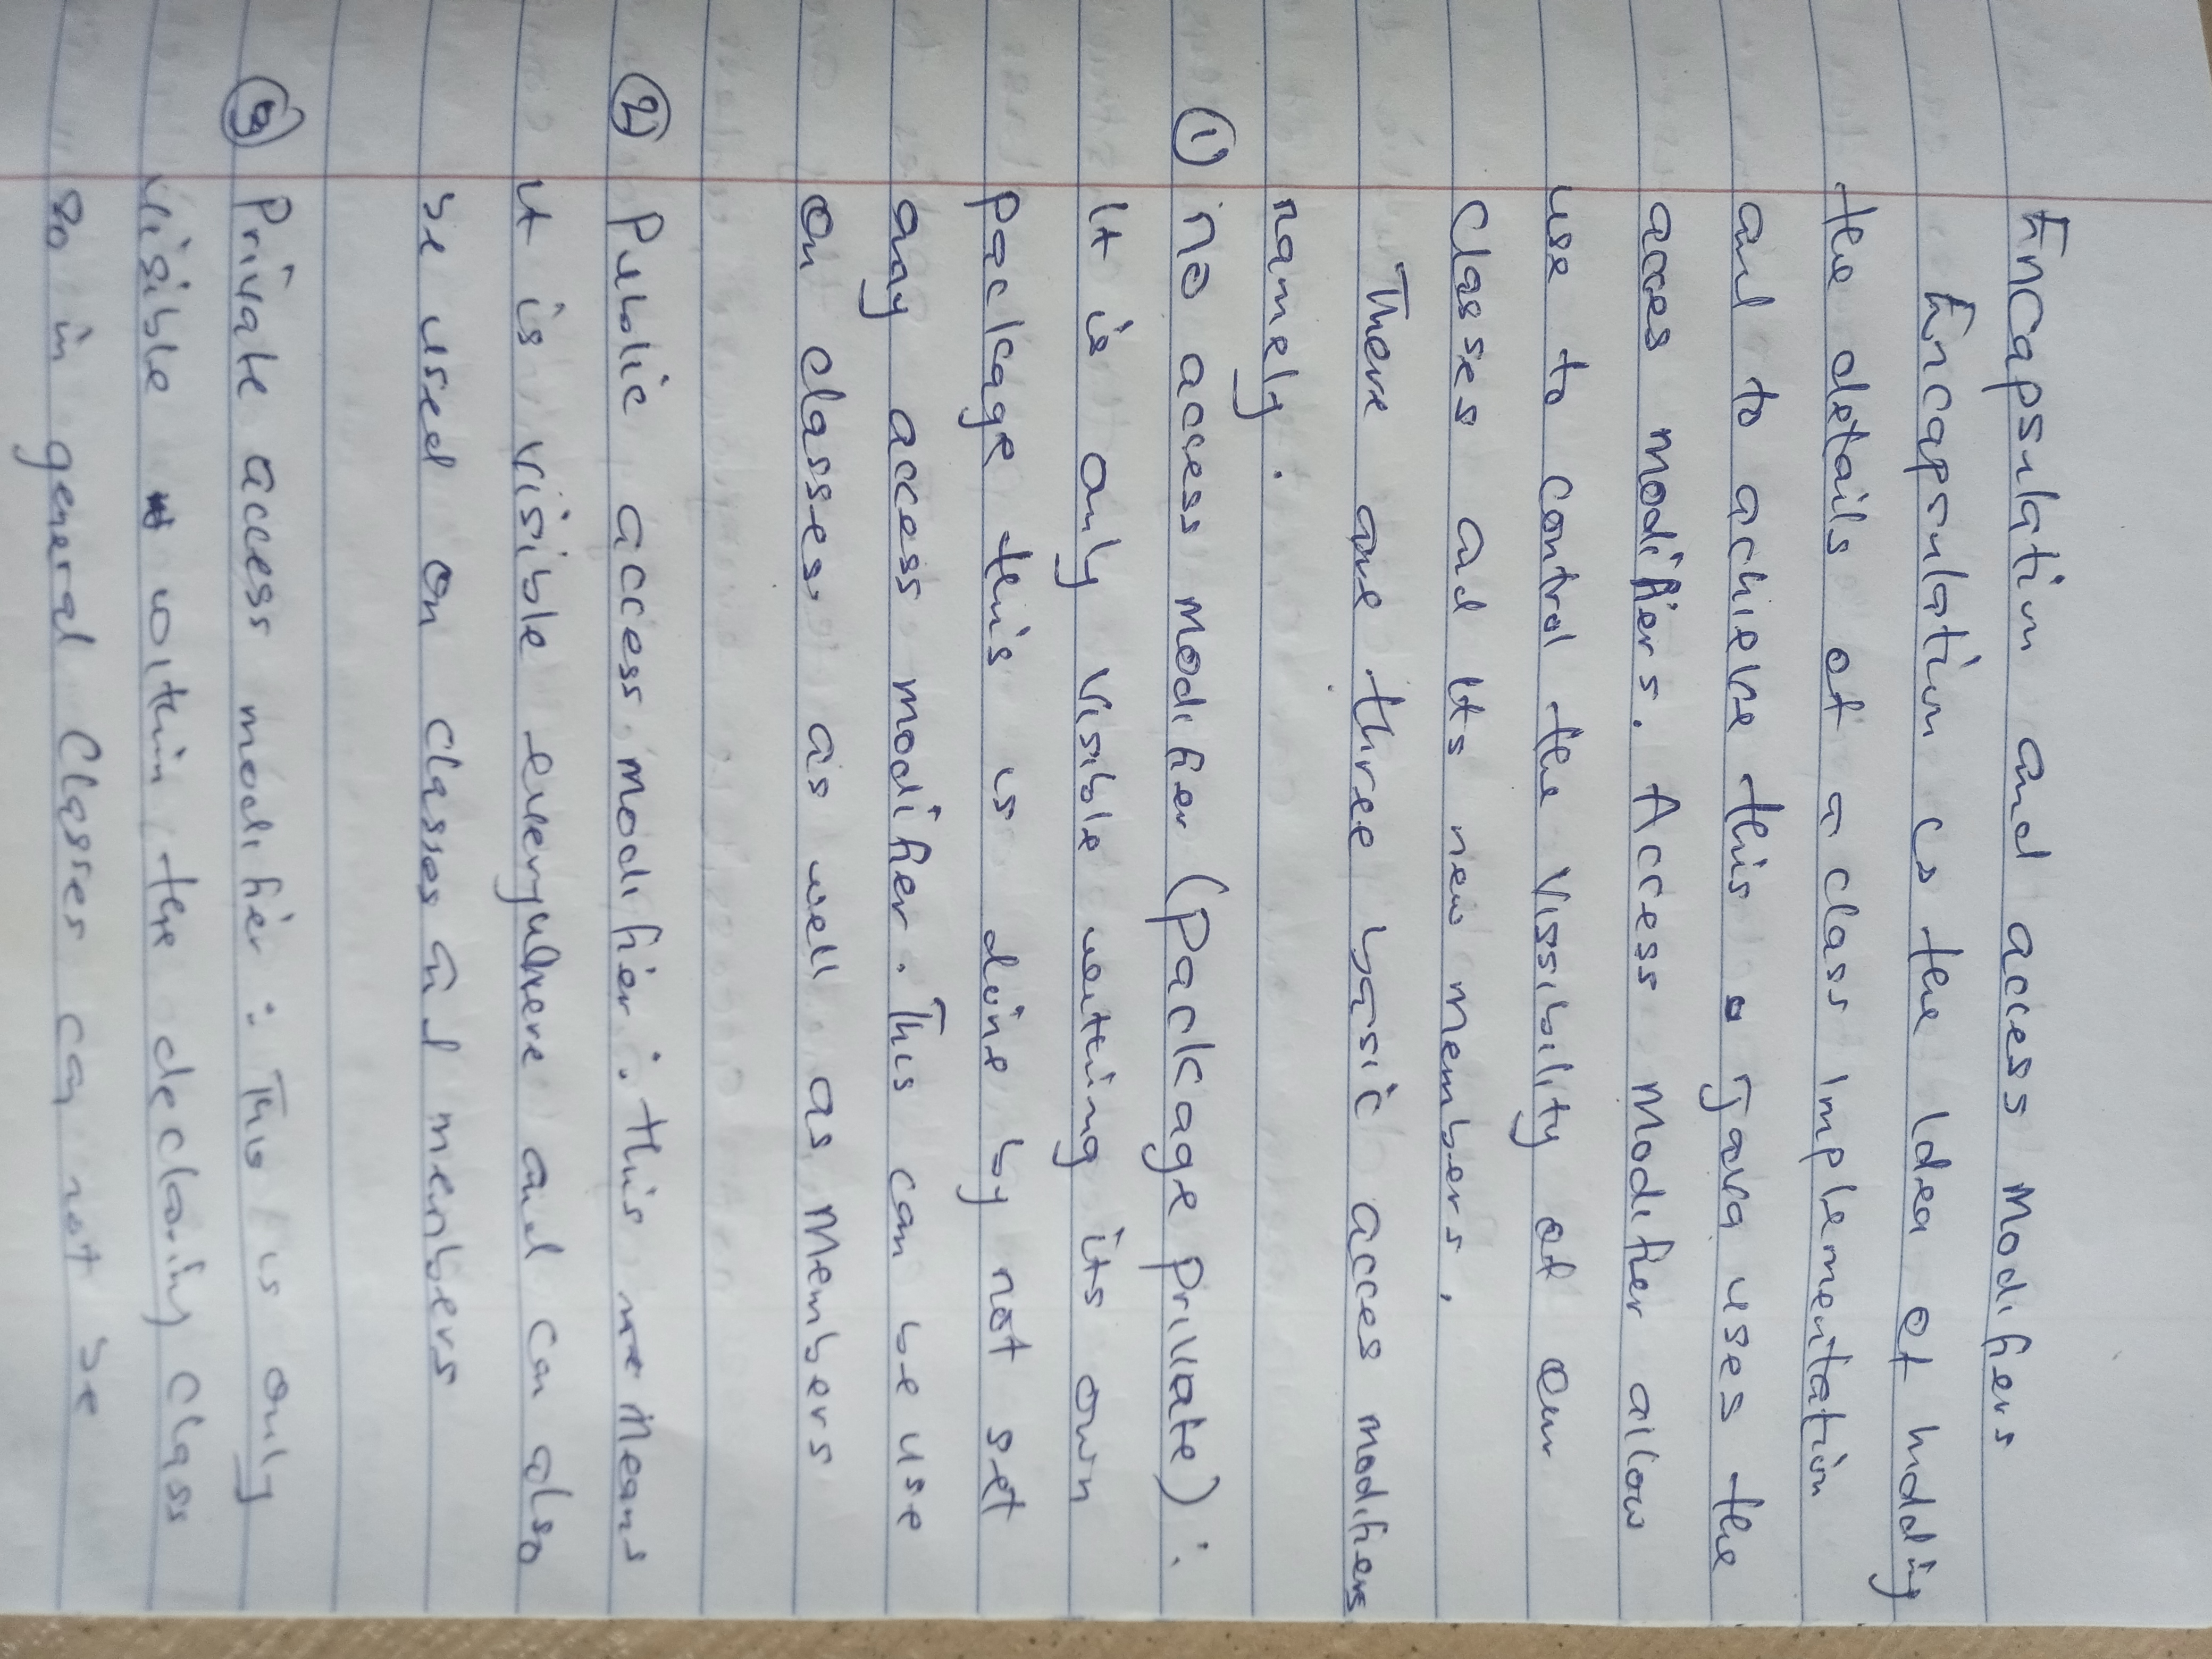 Encapsulation and access Modifiers
Encapsulation is the Idea of hidding
the details of a class Implementation
and to achieve this Java uses the
acces modifiers. Access Modifier allow
use to control the Vissibility of our
Classes and Its new members.
There are three basic acces modifiers
namely:
① no access Modifier (Package private):
It is only Visible withing its own
Package this is done by not set
any access modifier. This can be use
on classes as well as Members
② Public access modifier: this means
it is visible everywhere and can also
be used on classes and members
③ Private access modifier: This is only
visible within the declaring class
so in general Classes can not be